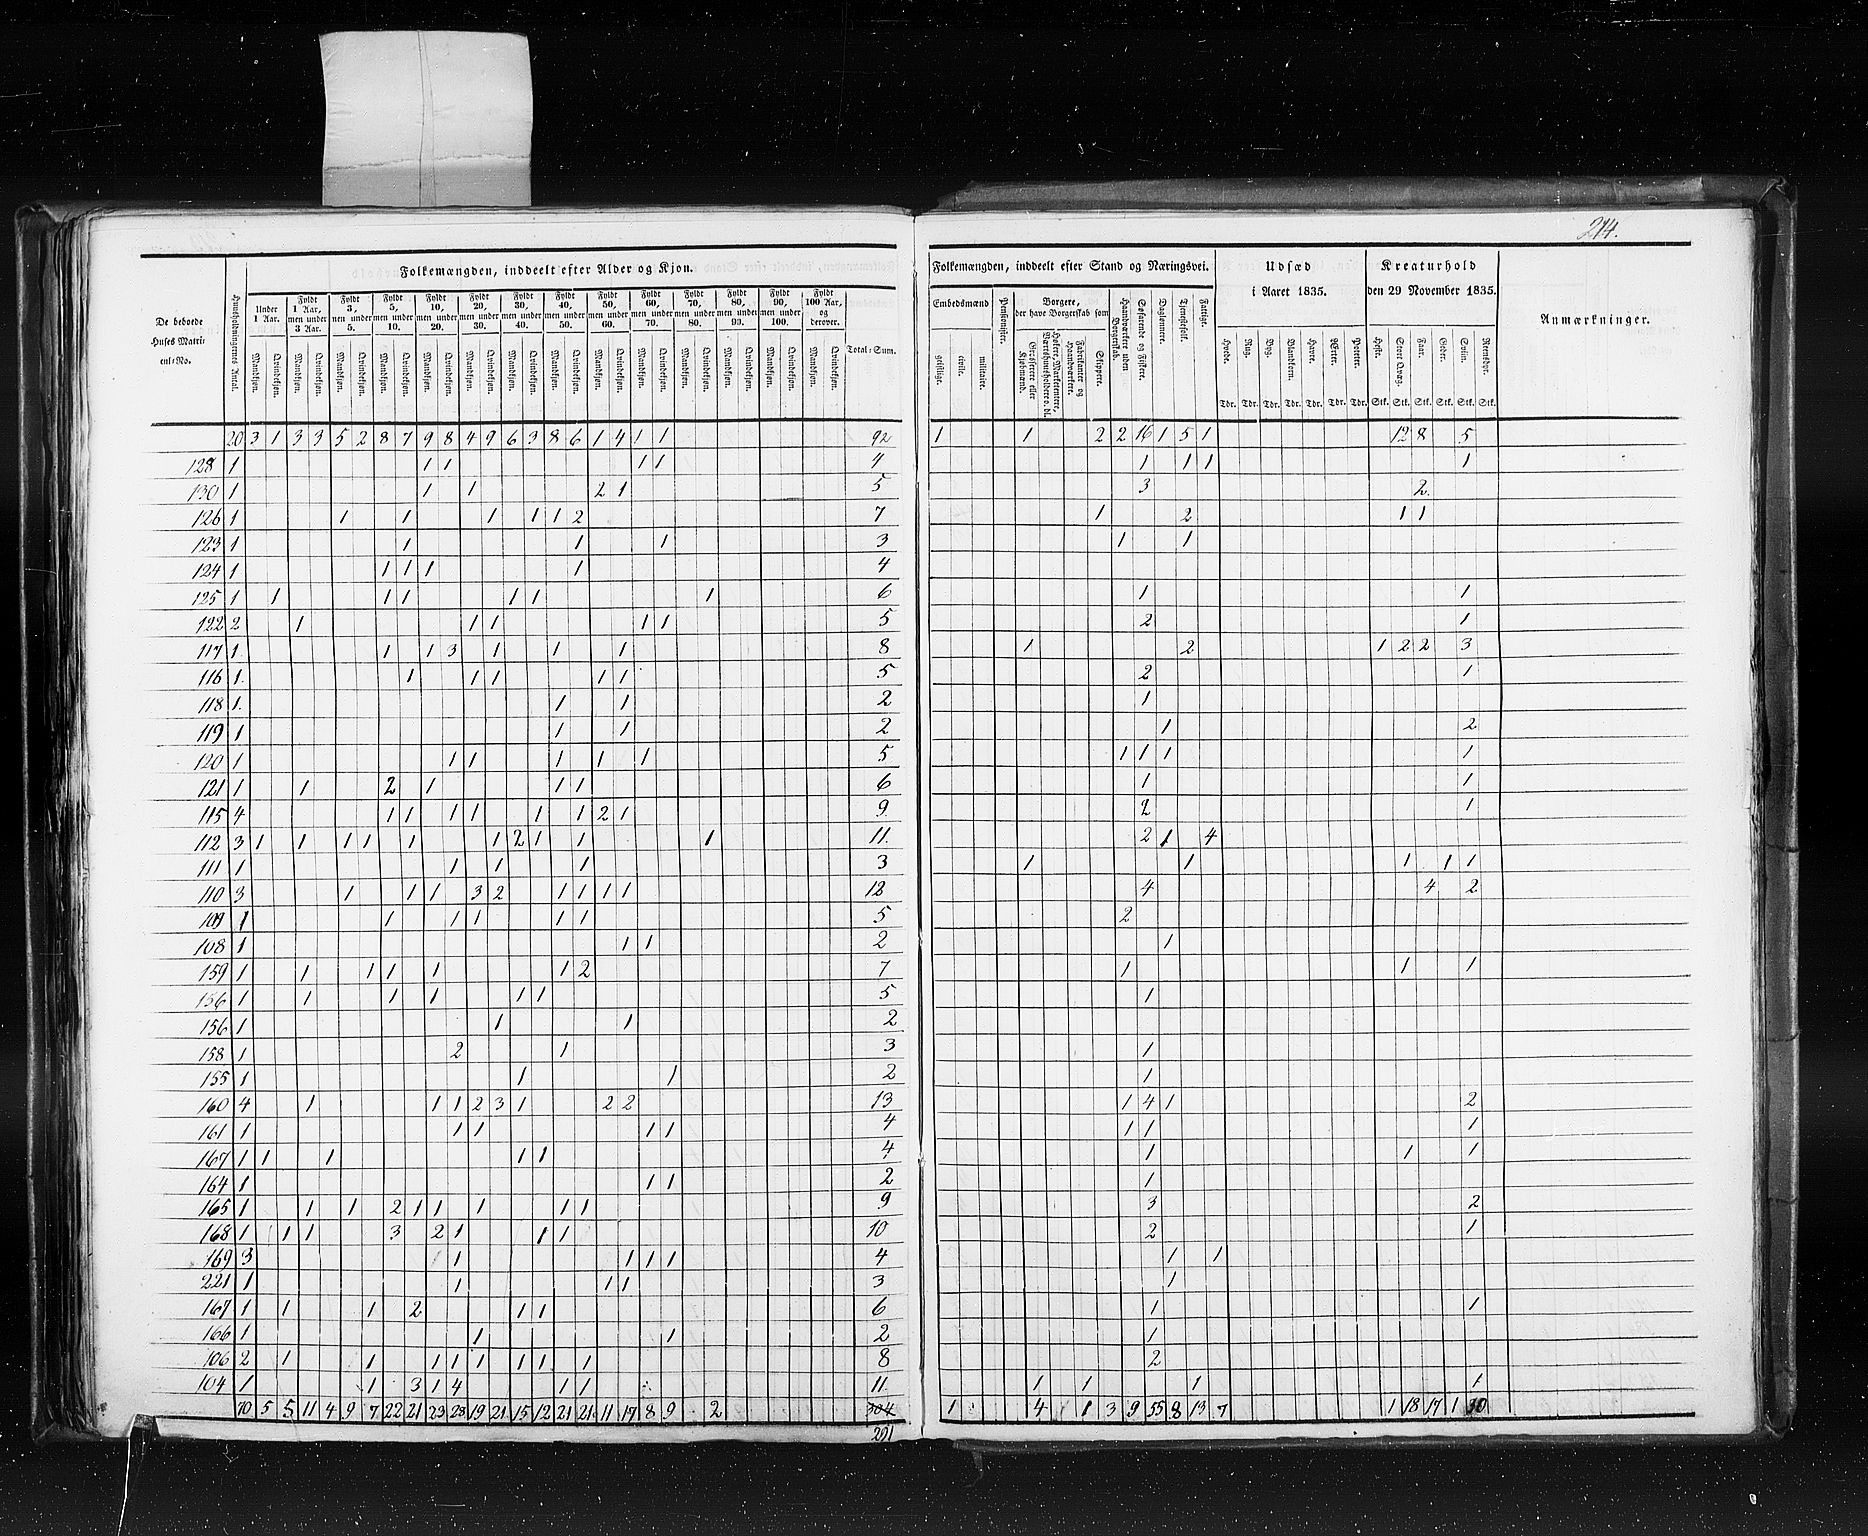 214.
Folkemængden, inddeelt efter Alder og Kjøn.
De beboede Huses Matricul-No.
Huusholdningernes Antal.
Under 1 Aar.
Fyldt 1 Aar, men under 3 Aar.
Fyldt 3, men under 5.
Fyldt 5, men under 10.
Fyldt 10, men under 20.
Fyldt 20, men under 30.
Fyldt 30, men under 40.
Fyldt 40, men under 50.
Fyldt 50, men under 60.
Fyldt 60, men under 70.
Fyldt 70, men under 80.
Fyldt 80, men under 90.
Fyldt 90, men under 100.
Fyldt 100 Aar, og derover.
Mandkjøn. Qvindekjøn. Mandkjøn. Qvindekjøn. Mandkjøn. Qvindekjøn. Mandkjøn. Qvindekjøn. Mandkjøn. Qvindekjøn. Mandkjøn. Qvindekjøn. Mandkjøn. Qvindekjøn. Mandkjøn. Qvindekjøn. Mandkjøn. Qvindekjøn. Mandkjøn. Qvindekjøn. Mandkjøn. Qvindekjøn. Mandkjøn. Qvindekjøn. Mandkjøn. Qvindekjøn. Mandkjøn. Qvindekjøn.
Total-Sum.
20 3 1 3 3 5 2 8 7 9 8 4 9 6 3 8 6 1 4 1 1 92
128 1 1 1 1 1 4
130 1 1 1 2 1 5
126 1 1 1 1 1 1 2 7
123 1 1 1 1 3
124 1 1 1 1 1 4
125 1 1 1 1 1 1 1 6
122 2 1 1 1 1 1 5
117 1. 1 1 3 1 1 1 8
116 1. 1 1 1 1 1 5
118 1. 1 1 2
119 1 1 1 2
120 1 1 1 1 1 1 5
121 1 1 2 1 1 1 6
115 4 1 1 1 1 1 1 2 1 9
112 3 1 1 1 1 1 1 2 1 1 1 11.
111 1 1 1 1 3
110 3 1 1 1 3 2 1 1 1 1 12
109 1 1 1 1 1 1 5
108 1 1 1 2
159 1 1 1 1 1 1 2 7
156 1 1 1 1 1 1 5
156 1 1 1 2
158 1 2 1 3
155 1 1 1 2
160 4 1 1 1 2 3 1 2 2 13
161 1 1 1 1 1 4
167 1 1 1 1 1 4
164 1 1 1 2
165 1 1 1 2 1 1 1 1 1 9
168 1 1 1 3 2 1 1 1 10
169 3 1 1 1 1 4
221 1 1 1 1 3
167 1 1 1 2 1 1 6
166 1 1 1 2
106 2 1 1 1 1 1 1 1 1 8
104 1 1 3 1 4 1 1 11.
70 5 5 11 4 9 7 22 21 23 28 19 21 15 12 21 21 11 17 8 9 2 304
291
Folkemængden, inddeelt efter Stand og Næringsvei.
Embedsmænd
geistlige. civile. militaire.
Pensionister.
Borgere, der have Borgerskab som
Grosserere eller Kjøbmænd.
Høkere, Marketentere, Værtshuusholdere o. dl.
Fabrikanter og Haandværkere.
Skippere.
Haandværkere uden Borgerskab.
Søfarende og Fiskere.
Daglønnere.
Tjenestefolk.
Fattige.
Udsæd i Aaret 1835.
Hvede. Rug. Byg. Blandkorn. Havre. Ærter. Poteter.
Tdr. Tdr. Tdr. Tdr. Tdr. Tdr. Tdr.
Kreaturhold den 29 November 1835.
Heste. Stort Qvæg. Faar. Geder. Sviin. Rensdyr.
Stk. Stk. Stk. Stk. Stk. Stk.
Anmærkninger.
1 1 2 2 16 1 5 1 12 8 5
1 1 1 1
3 2.
1 2 1 1
1 1
1 1
2 1
1 2 1 2 2 3
2 1
1
1 2
1 1 1 1
1 1
2 1
2 1 4
1 1 1 1 1
4 4 2
2
1
1 1 1
1
1
1
1 4 1 2
1 1 1
1 1 1
1
3 2
2 1
1 1
1
1 1
1
2
1 1 1 1
1 4 1 3 9 55 8 13 7 1 18 17 1 30